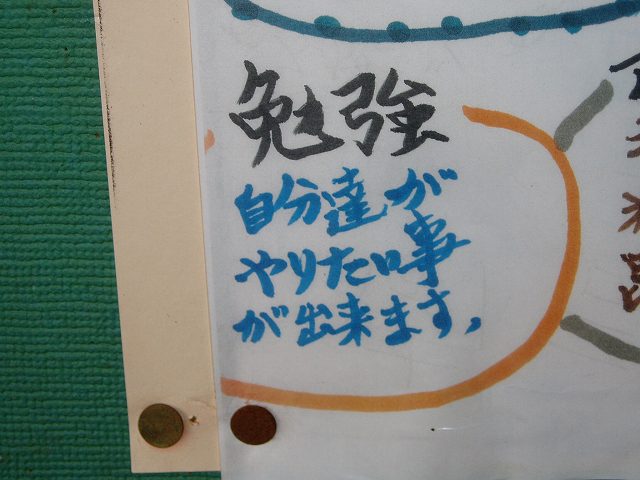 勉強
自分達が
やりたい事
が出来ます。